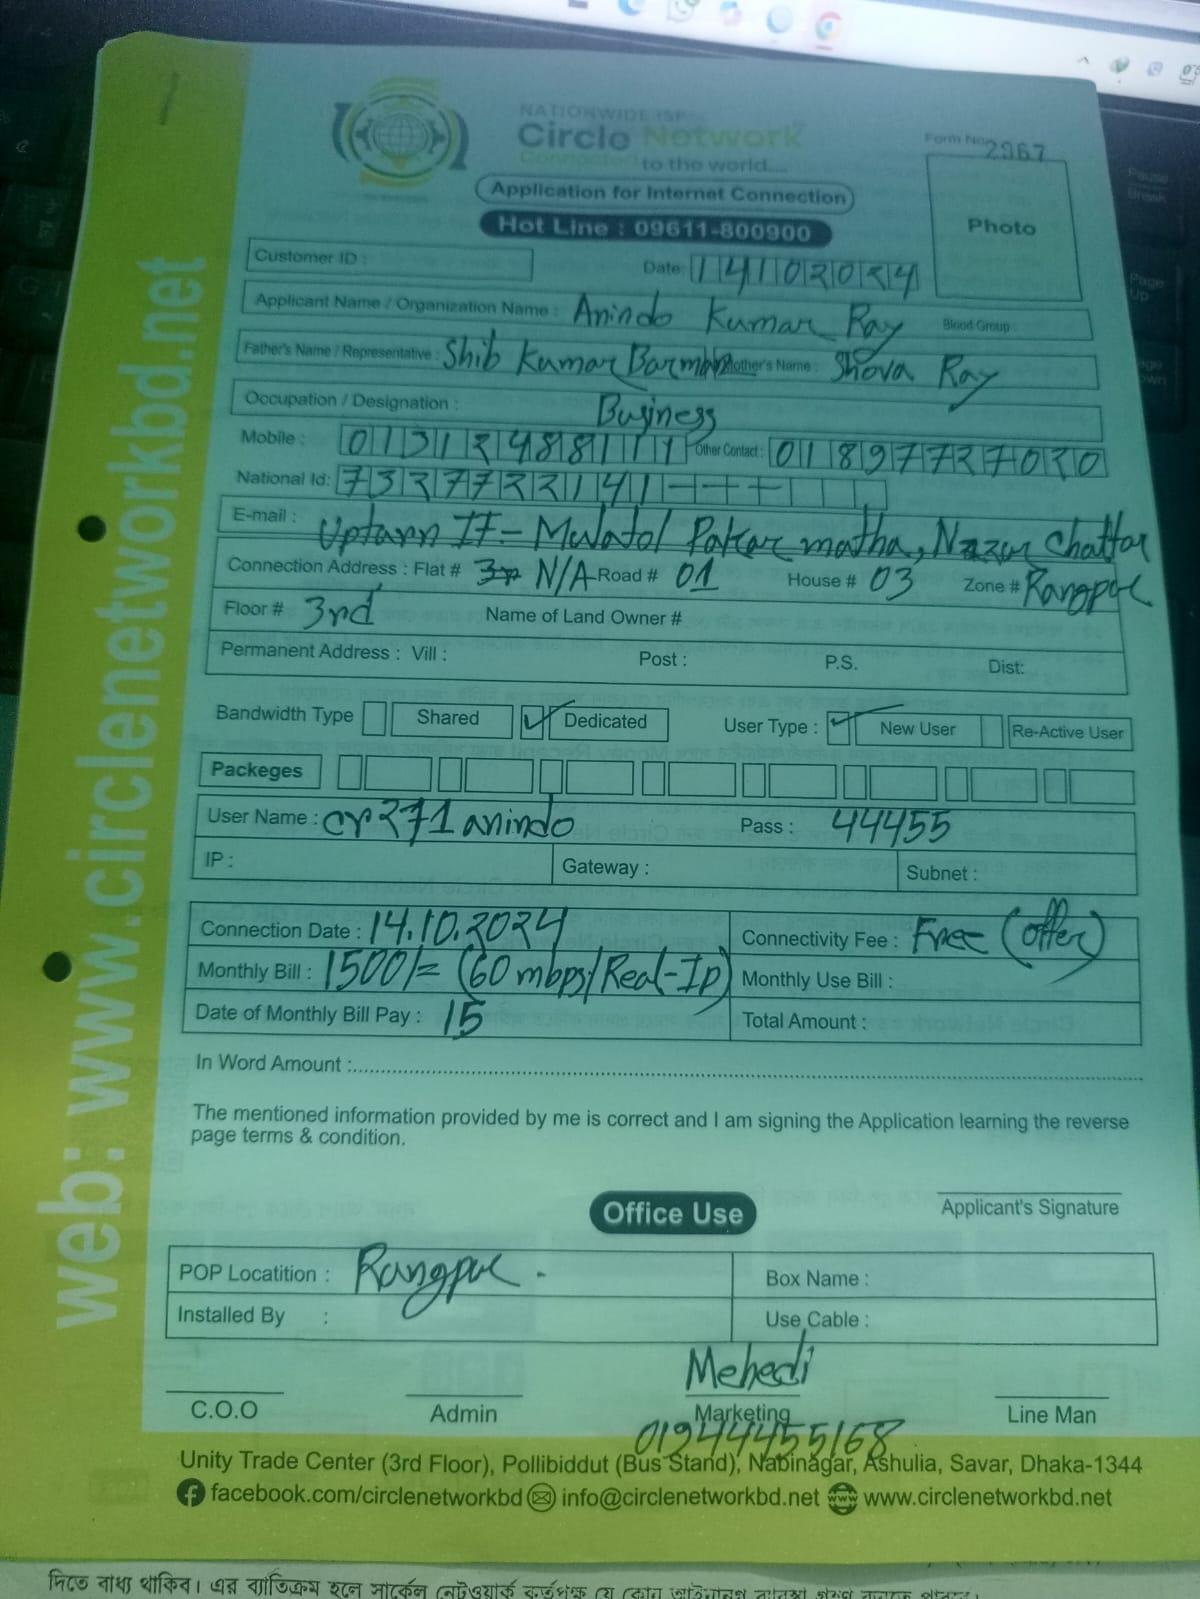 1
NATIONWIDE ISP
Circle Network
Connected to the world....
Form No. 2967
Application for Internet Connection
Hot Line : 09611-800900
Photo
Customer ID :
Date: 14102024
Applicant Name / Organization Name : Anindo Kumar Ray Blood Group :
Father's Name / Representative : Shib Kumar Barman Mother's Name : Shova Ray
Occupation / Designation : Business
Mobile : 01312488111 Other Contact : 01897727020
National Id: 7327722141
E-mail : Uptarn IT - Mulatol Pakar matha, Nazur Chattar
Connection Address : Flat # N/A Road # 01 House # 03 Zone # Rangpur
Floor # 3rd Name of Land Owner #
Permanent Address : Vill : Post : P.S. Dist:
Bandwidth Type Shared Dedicated User Type : New User Re-Active User
Packeges
User Name : cr271anindo Pass : 44455
IP : Gateway : Subnet :
Connection Date : 14.10.2024 Connectivity Fee : Free (offer)
Monthly Bill : 1500/= (60 mbps/Real-Ip) Monthly Use Bill :
Date of Monthly Bill Pay : 15 Total Amount :
In Word Amount :
The mentioned information provided by me is correct and I am signing the Application learning the reverse
page terms & condition.
Applicant's Signature
Office Use
POP Locatition : Rangpur . Box Name :
Installed By : Use Cable :
Mehedi
C.O.O Admin Marketing Line Man
01944455168
Unity Trade Center (3rd Floor), Pollibiddut (Bus Stand), Nabinagar, Ashulia, Savar, Dhaka-1344
facebook.com/circlenetworkbd info@circlenetworkbd.net www.circlenetworkbd.net
web: www.circlenetworkbd.net
দিতে বাধ্য থাকিব। এর ব্যতিক্রম হলে সার্কেল নেটওয়ার্ক কর্তৃপক্ষ যে কোন